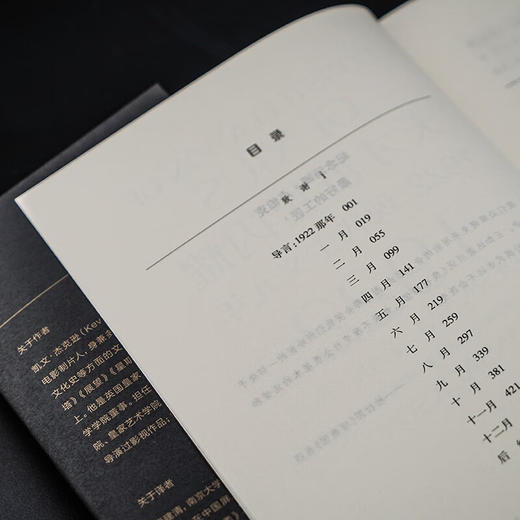 目录
致谢 1
导言:1922那年 001
一月 019
二月 055
三月 099
四月 141
五月 177
六月 219
七月 259
八月 297
九月 339
十月 381
十一月 421
十二月
后
关于作者
凯文·杰克逊(Kev
电影制片人,身兼
文化史等方面的文
塔》《展望》《星期
上。他是英国皇家
学学院董事。担任
院、皇家艺术学院
导演过影视作品,
关于译者
建清,南京大学
在中国屏